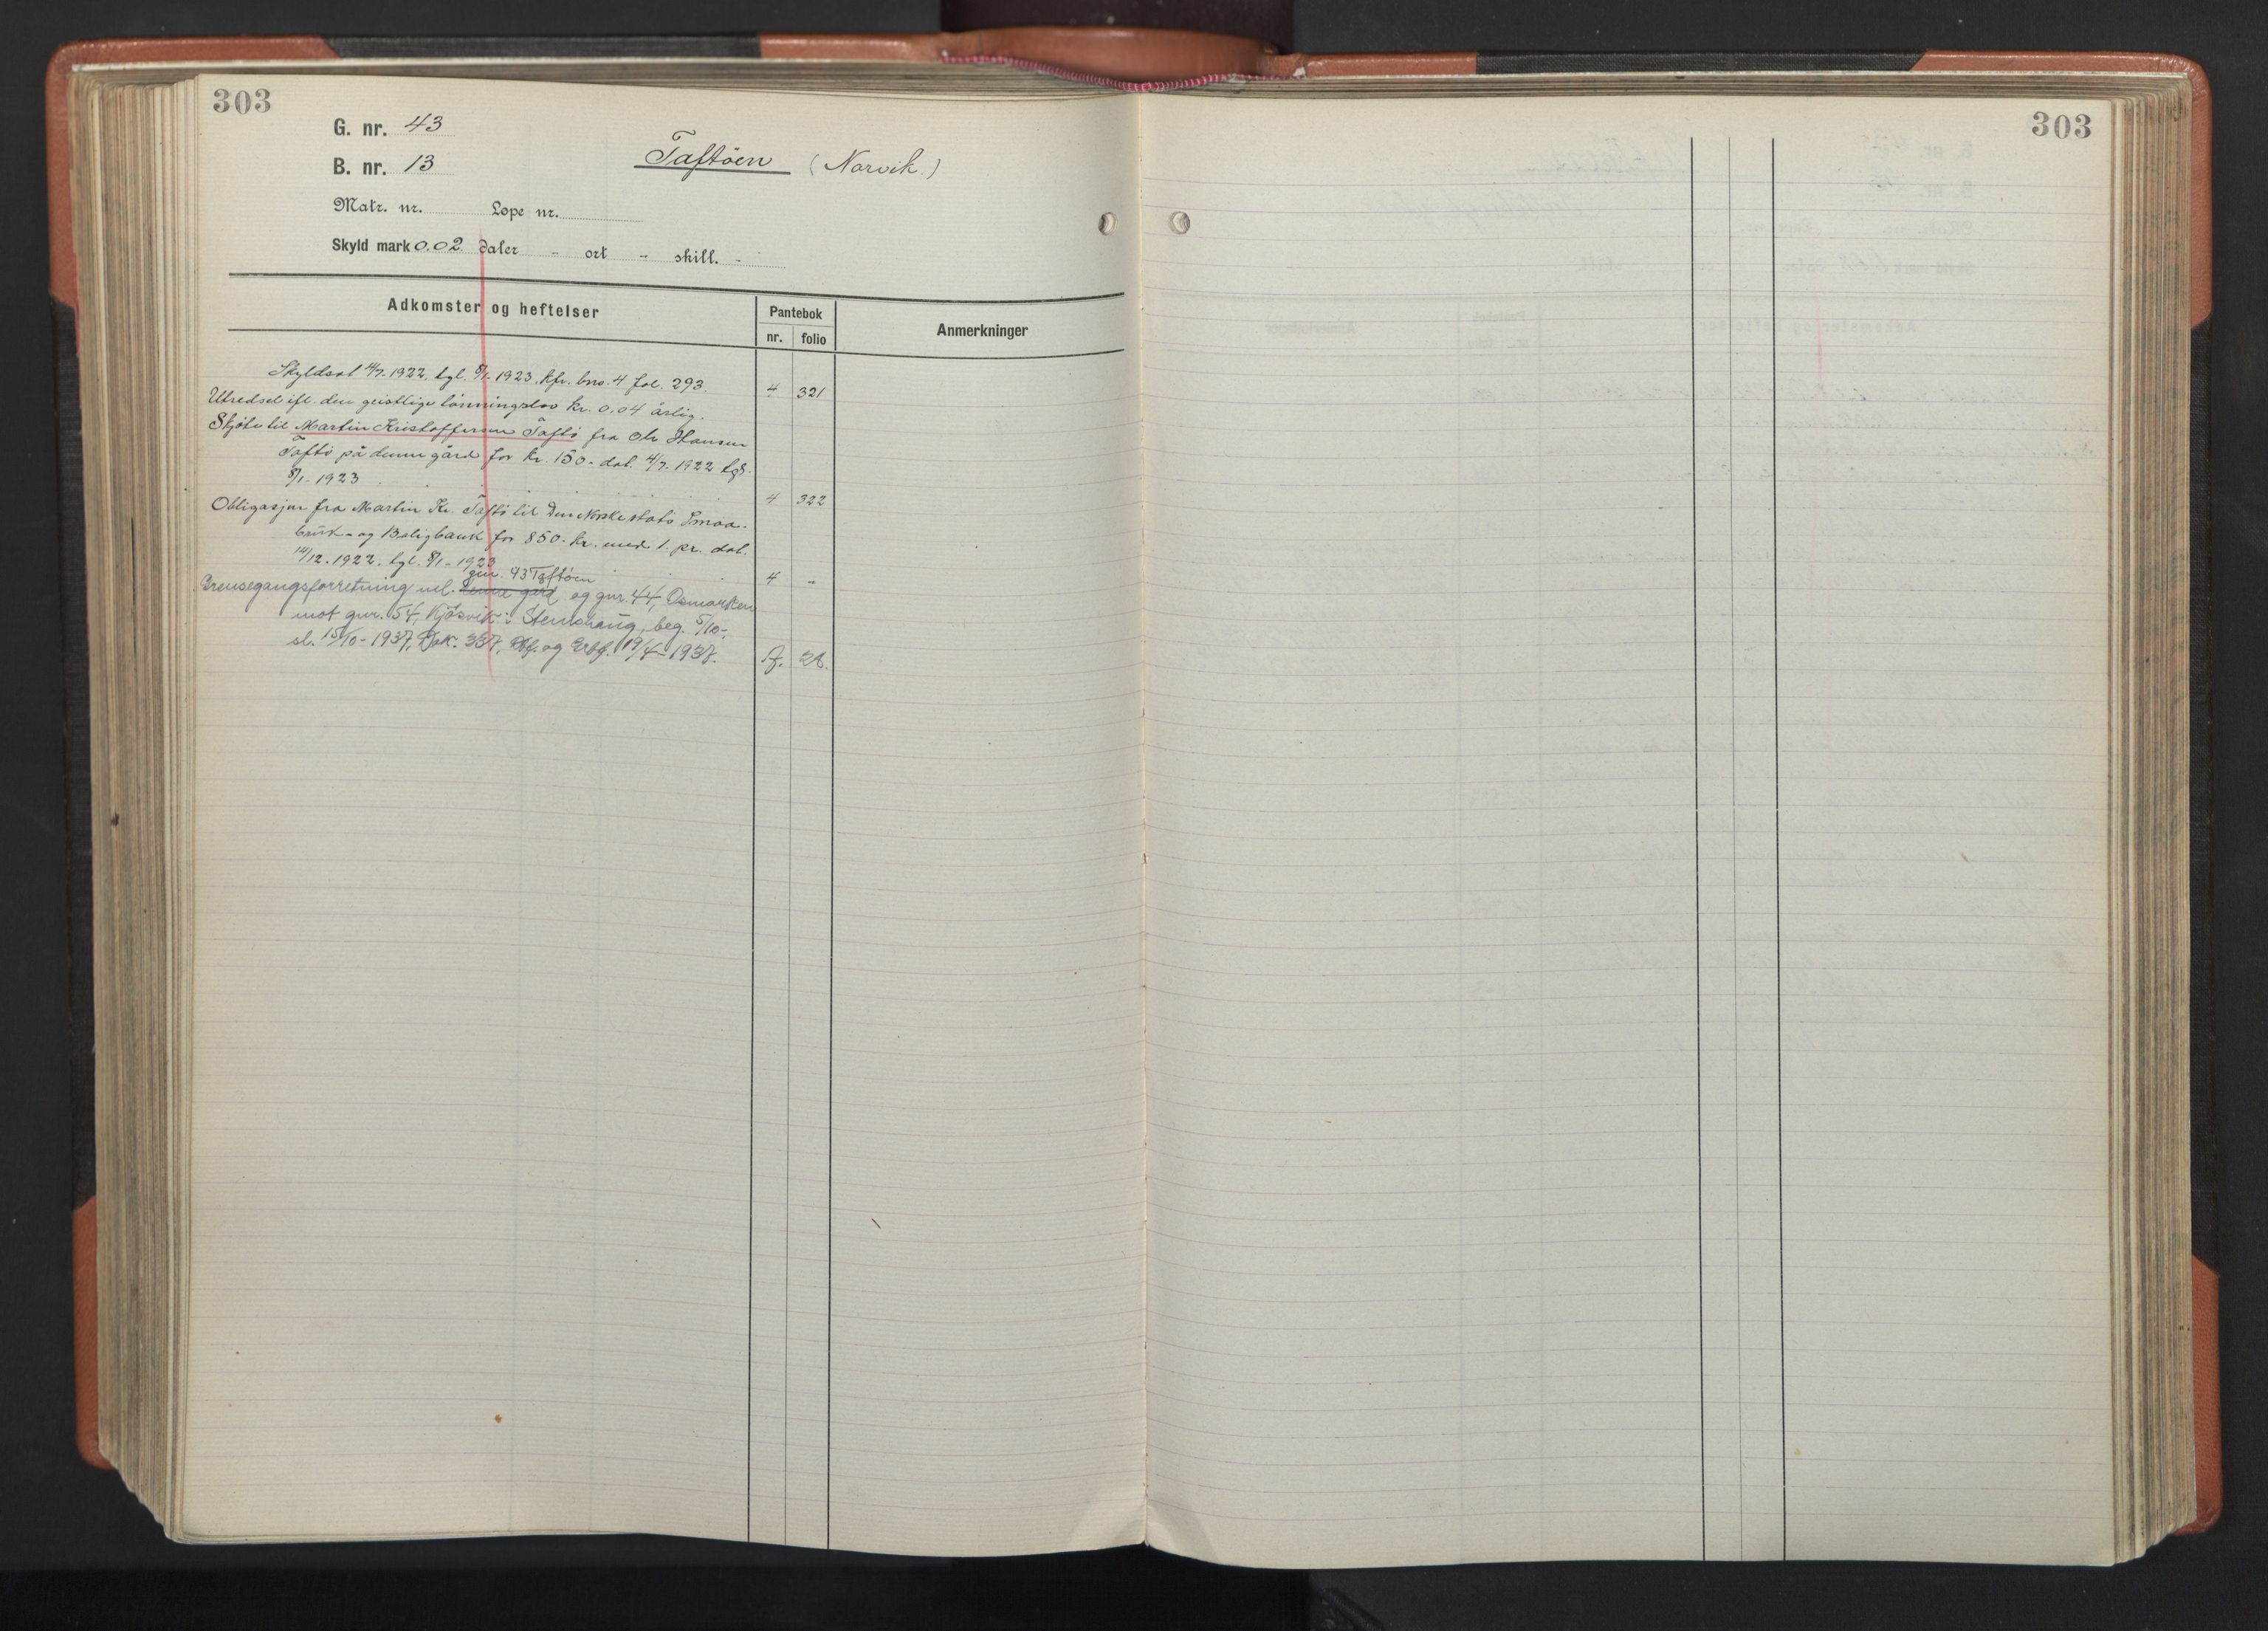 303
G. nr. 43
B. nr. 13
Taftöen (Narvik.)
Matr. nr. Løpe nr.
Skyld mark 0.02 daler - ort - skill. -
Adkomster og heftelser
Pantebok
nr. folio
Anmerkninger
Skyldsat 4/7-1922. tgl. 8/1-1923. Kfr. bno. 4 fol. 293. 4 321
Utredsel ifl. den geistlige lönningslov kr. 0.04 årlig.
Skjöte til Martin Kristoffersen Taftö fra Ole Hansen
Taftö på denne gård for kr. 150- dat. 4/7-1922 tgl.
8/1-1923 4 322
Obligasjon fra Martin Kr. Taftö til Den Norske stats Smaa-
bruk- og Boligbank for 850- kr. med 1. pr. dat.
14/12-1922. tgl. 8/1-1923 4 "
gnr. 43 Taftöen
Grensegangsforretning vel. denne gård og gnr. 44, Osmarken
mot gnr. 54, Kjösvik i Stemshaug, beg. 5/10-,
sl. 15/10-1937, Dok. 337, og 19/4-1937.
303